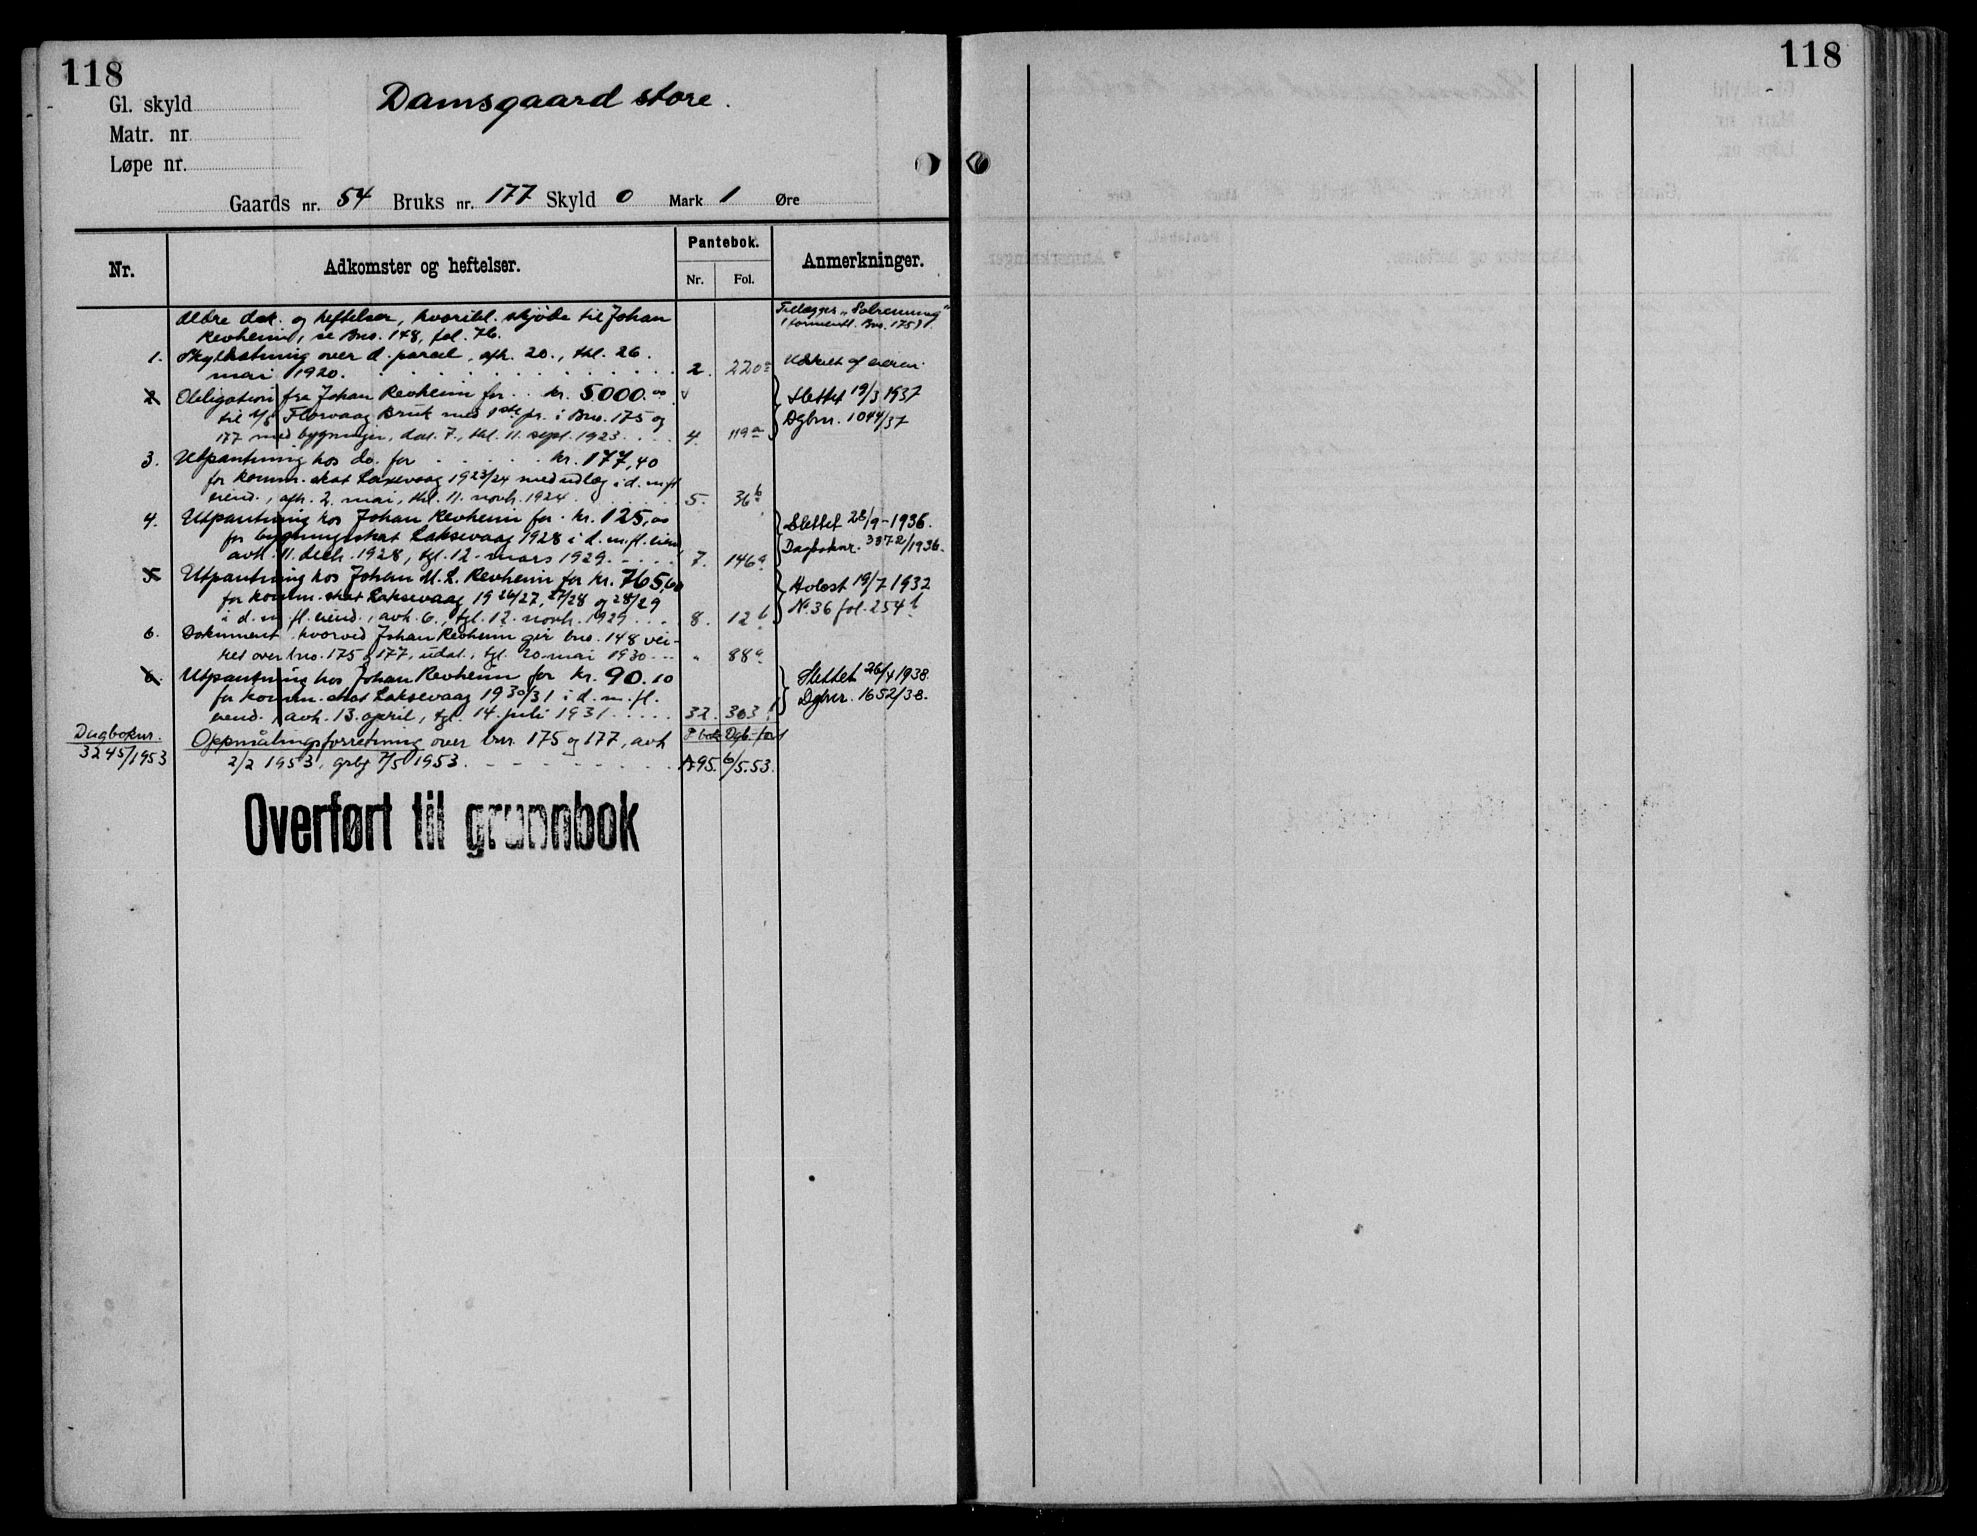 118
Gl. skyld
Damsgaard store.
Matr. nr
Løpe nr.
Gaards nr. 54 Bruks nr. 177 Skyld 0 Mark 1 Øre
Nr.
Adkomster og heftelser.
Pantebok.
Nr. Fol.
Anmerkninger.
Ældre dok. og heftelser, hvoribl. skjøde til Johan
Revheim, se Bno. 148, fol. 76.
Tillægges "
1. Skyldsetning over d. parcel, afh. 20., thl. 26.
mai 1920. 2. 220a Utskilt af eieren.
2 Obligation fra Johan Revheim for kr. 5000.00
til A/S Florvaag Bruk med 1ste pr. i Bno. 175 og
177 med bygninger, dat. 7., thl. 11. sept. 1923. 4. 119a
Slettet 19/3 1937
Dgbnr. 1044/37
3. Utpantning hos do. for kr. 177,40
for komm. skat Laksevaag 1923/24 med udlæg i d. m. fl.
eiend., afh. 2. mai, thl. 11. novb. 1924. 5. 36b
4. Utpantning hos Johan Revheim for kr. 125,00
for bygningsskat Laksevaag 1928 i d. m. fl. eiend
avh. 11. decb. 1928, tgl. 12. mars 1929. 7. 146a
Slettet 28/9-1936.
Dagboknr. 3872/1936.
5 Utpantning hos Johan M. L. Revheim for kr. 765,60
for komm. skat Laksevaag 1926/27, 27/28 og 28/29
i d. m. fl. eiend., avh. 6., tgl. 12. novb. 1929 8. 12b
Avlæst 19/7 1932
No 36 fol. 254b
6. Dokument hvorved Johan Revheim gir bno. 148 vei-
ret over bno. 175 og 177, udat., tgl. 20 mai 1930 " 88a
6. Utpantning hos Johan Revheim for kr. 90.10
for komm. skat Laksevaag 1930/31 i d. m. fl.
eiend., avh. 13. april, tgl. 14. juli 1931. 32. 303
Slettet 26/4 1938
Dgbnr. 1652/38.
Dagboknr.
3245/1953
Oppmålingsforretning over bnr. 175 og 177, avh P bok Dgb.-ført
2/2 1953, grbg 7/5 1953. A95. 6/5.53.
Overført til grunnbok
118